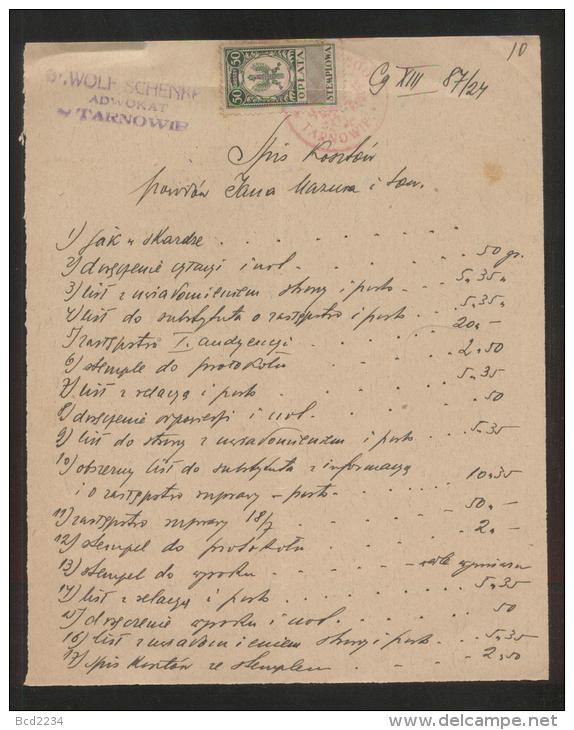 10
Dr. WOLF SCHENKEL
ADWOKAT
W TARNOWIE
50 50
OPŁATA
STEMPLOWA
TARNOWIE
Cg XIII 87/24
Spis Kosztów
powodów Jana Mazura i tow.
1) jak w skardze
2) doręczenie cytacji i uol. 50 gr.
3) list z uwiadomieniem strony i porto 5.35
4) list do substytuta o zastępstwo i porto 5.35
5) zastępstwo I. audyencji 20.-
6) stemple do protokołu 2.50
7) list z relacją i porto 5.35
8) doręczenie odpowiedzi i uol. 50
9) list do strony z uwiadomieniem i porto 5.35
10) obszerny list do substytuta z informacją
i o zastępstwo rozprawy - porto 10.35
11) zastępstwo rozprawy 18/7 50.-
12) stempel do protokołu 2.-
13) stempel do wyroku - wedle wymiaru
14) list z relacją i porto 5.35
15) doręczenie wyroku i uol. 50
16) list z uwiadomieniem strony i porto 5.35
17) Spis Kosztów ze stemplem 2.50
Bcd2234
www.delcampe.net